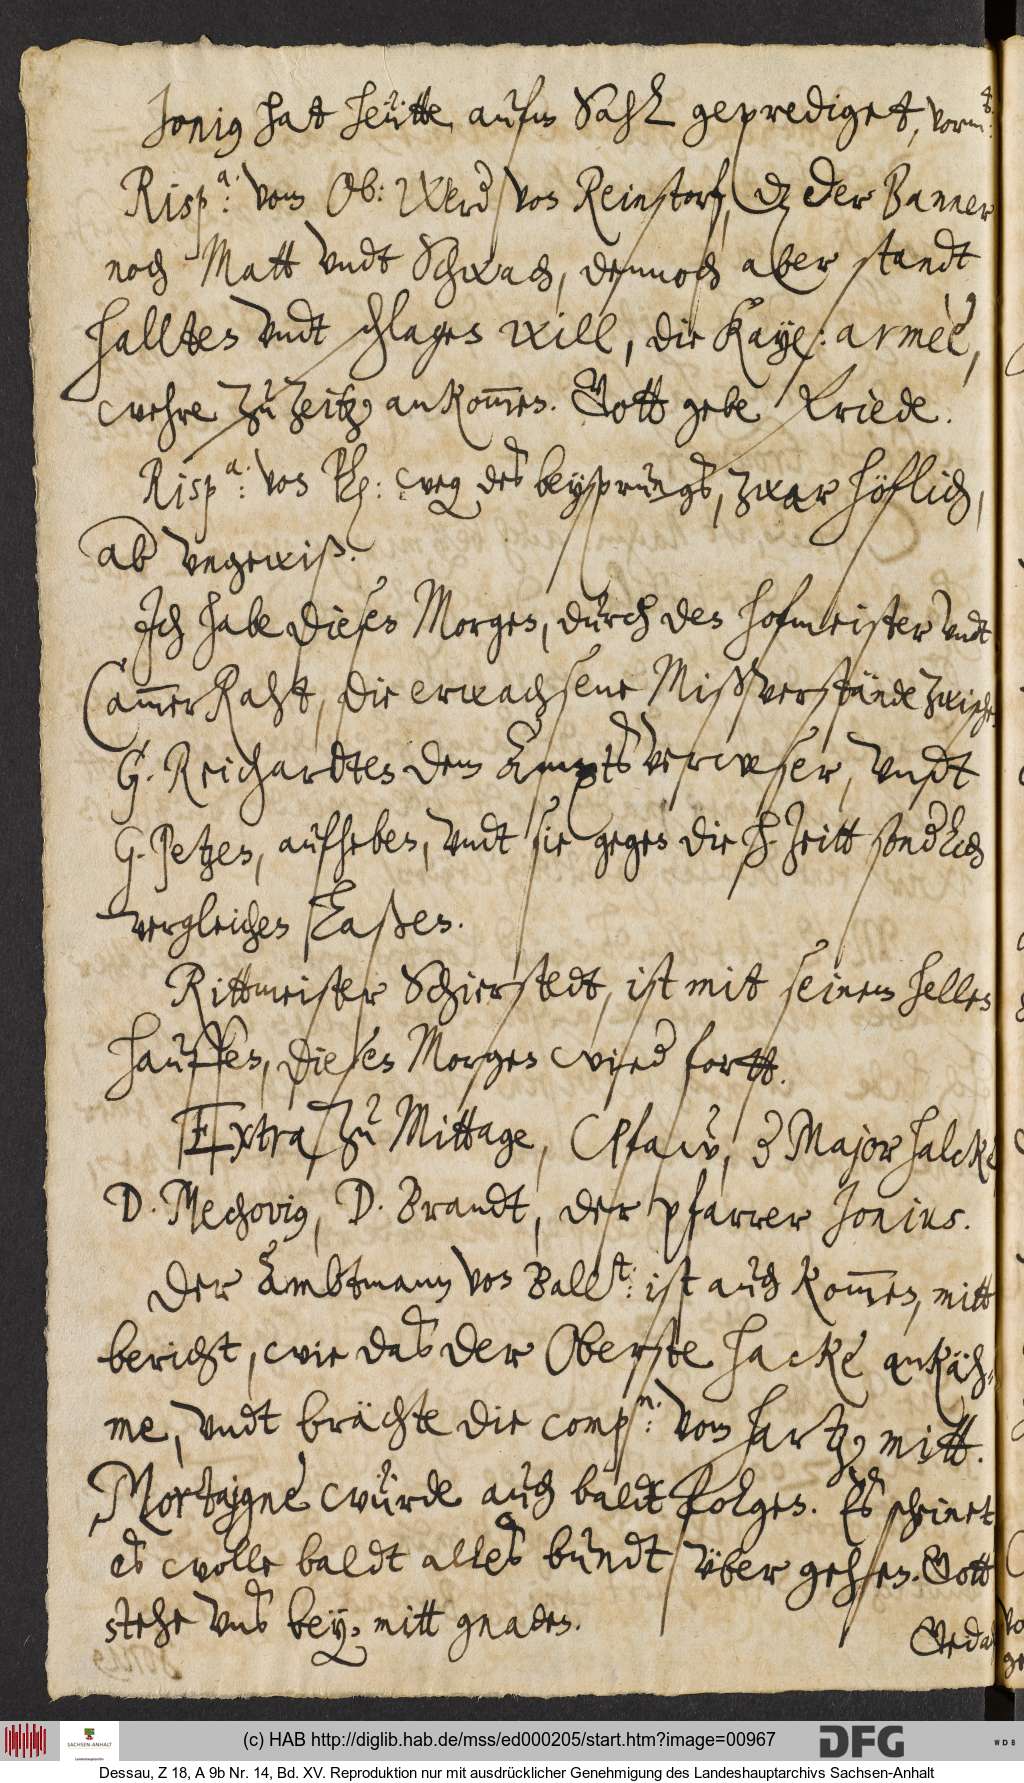 Jonig hat heütte aufm Sahl geprediget, vorm:
Risp.a: vom Ob: Werd von Reinstorf, dz der Banner
noch Matt undt Schwach, dennoch aber standt
halten undt schlagen will, die Kaye: armèe,
wehre zu Zeitz, ankommen. Gott gebe Friede.
Risp.a: von Pl: weg. des beysprungs, zwar höflich,
ab ungewiß.
Ich habe diesen Morgen, durch den hofmeister undt
CammerRaht, die erwachsene Mißverstände zwischen
G. Reichardten dem Amptsverweser, undt
G. Petzen, aufheben, undt sie gegen die h. Zeitt sendlich
vergleichen laßen.
Rittmeister Schierstedt, ist mit seinem hellen
hauffen, diesen Morgen wied fortt.
Extra zu Mittage, Pfaw, Major Halcke
D. Mechovig, D. Brandt, der pfarrer Jonius.
Der Ambtmann von Ballst: ist auch kommen, mitt
bericht, wie das der Oberste Hacke ankäh=
me, undt brächte die comp.n: vom Hartz, mitt.
Mortaigne würde auch baldt folgen. Es scheinet
es wolle baldt alles bundt über gehen. Gott
stehe uns bey, mitt gnaden.
(c) HAB http://diglib.hab.de/mss/ed000205/start.htm?image=00967
SACHSEN-ANHALT
DFG
WDB
Dessau, Z 18, A 9b Nr. 14, Bd. XV. Reproduktion nur mit ausdrücklicher Genehmigung des Landeshauptarchivs Sachsen-Anhalt